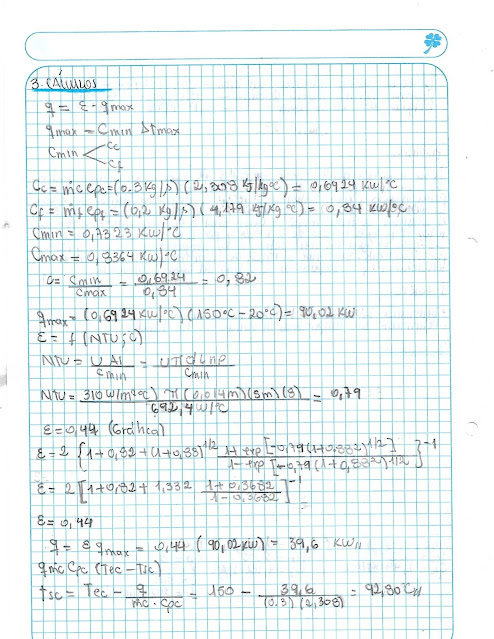 3. Cálculos
q = ε · qmax
qmax = Cmin Δtmax
Cmin < Cc
Cf
Cc = ṁc Cpc = (0.3 kg/s) (2,308 kJ/kg°C) = 0,6924 kW/°C
Cf = ṁf Cpf = (0,2 kg/s) (4,179 kJ/kg°C) = 0,84 kW/°C
Cmin = 0,7323 kW/°C
Cmax = 0,8364 kW/°C
c = Cmin/Cmax = 0,6924/0,84 = 0,82
qmax = (0,6924 kW/°C) (150°C - 20°C) = 90,02 kW
ε = f (NTU; C)
NTU = U Ai/Cmin = U π d L np/Cmin
NTU = 310 W/m²°C) π (0,014m) (5m) (8)/692,4 W/°C = 0,79
ε = 0,47 (Gráfica)
ε = 2 {1 + 0,82 + (1 + 0,83)^1/2 1 + exp [-0,79 (1 + 0.882)^1/2]/1 - exp [-0,79 (1 + 0,882)^1/2]}^-1
ε = 2 [1 + 0,82 + 1,332 1 + 0,3682/1 - 0,3682]^-1
ε = 0,44
q = ε qmax = 0.44 (90,02 kW) = 39,6 kW//
q ṁc Cpc (Tec - Tsc)
tsc = Tec - q/ṁc · Cpc = 150 - 39,6/(0.3) (2,308) = 92,80°C//